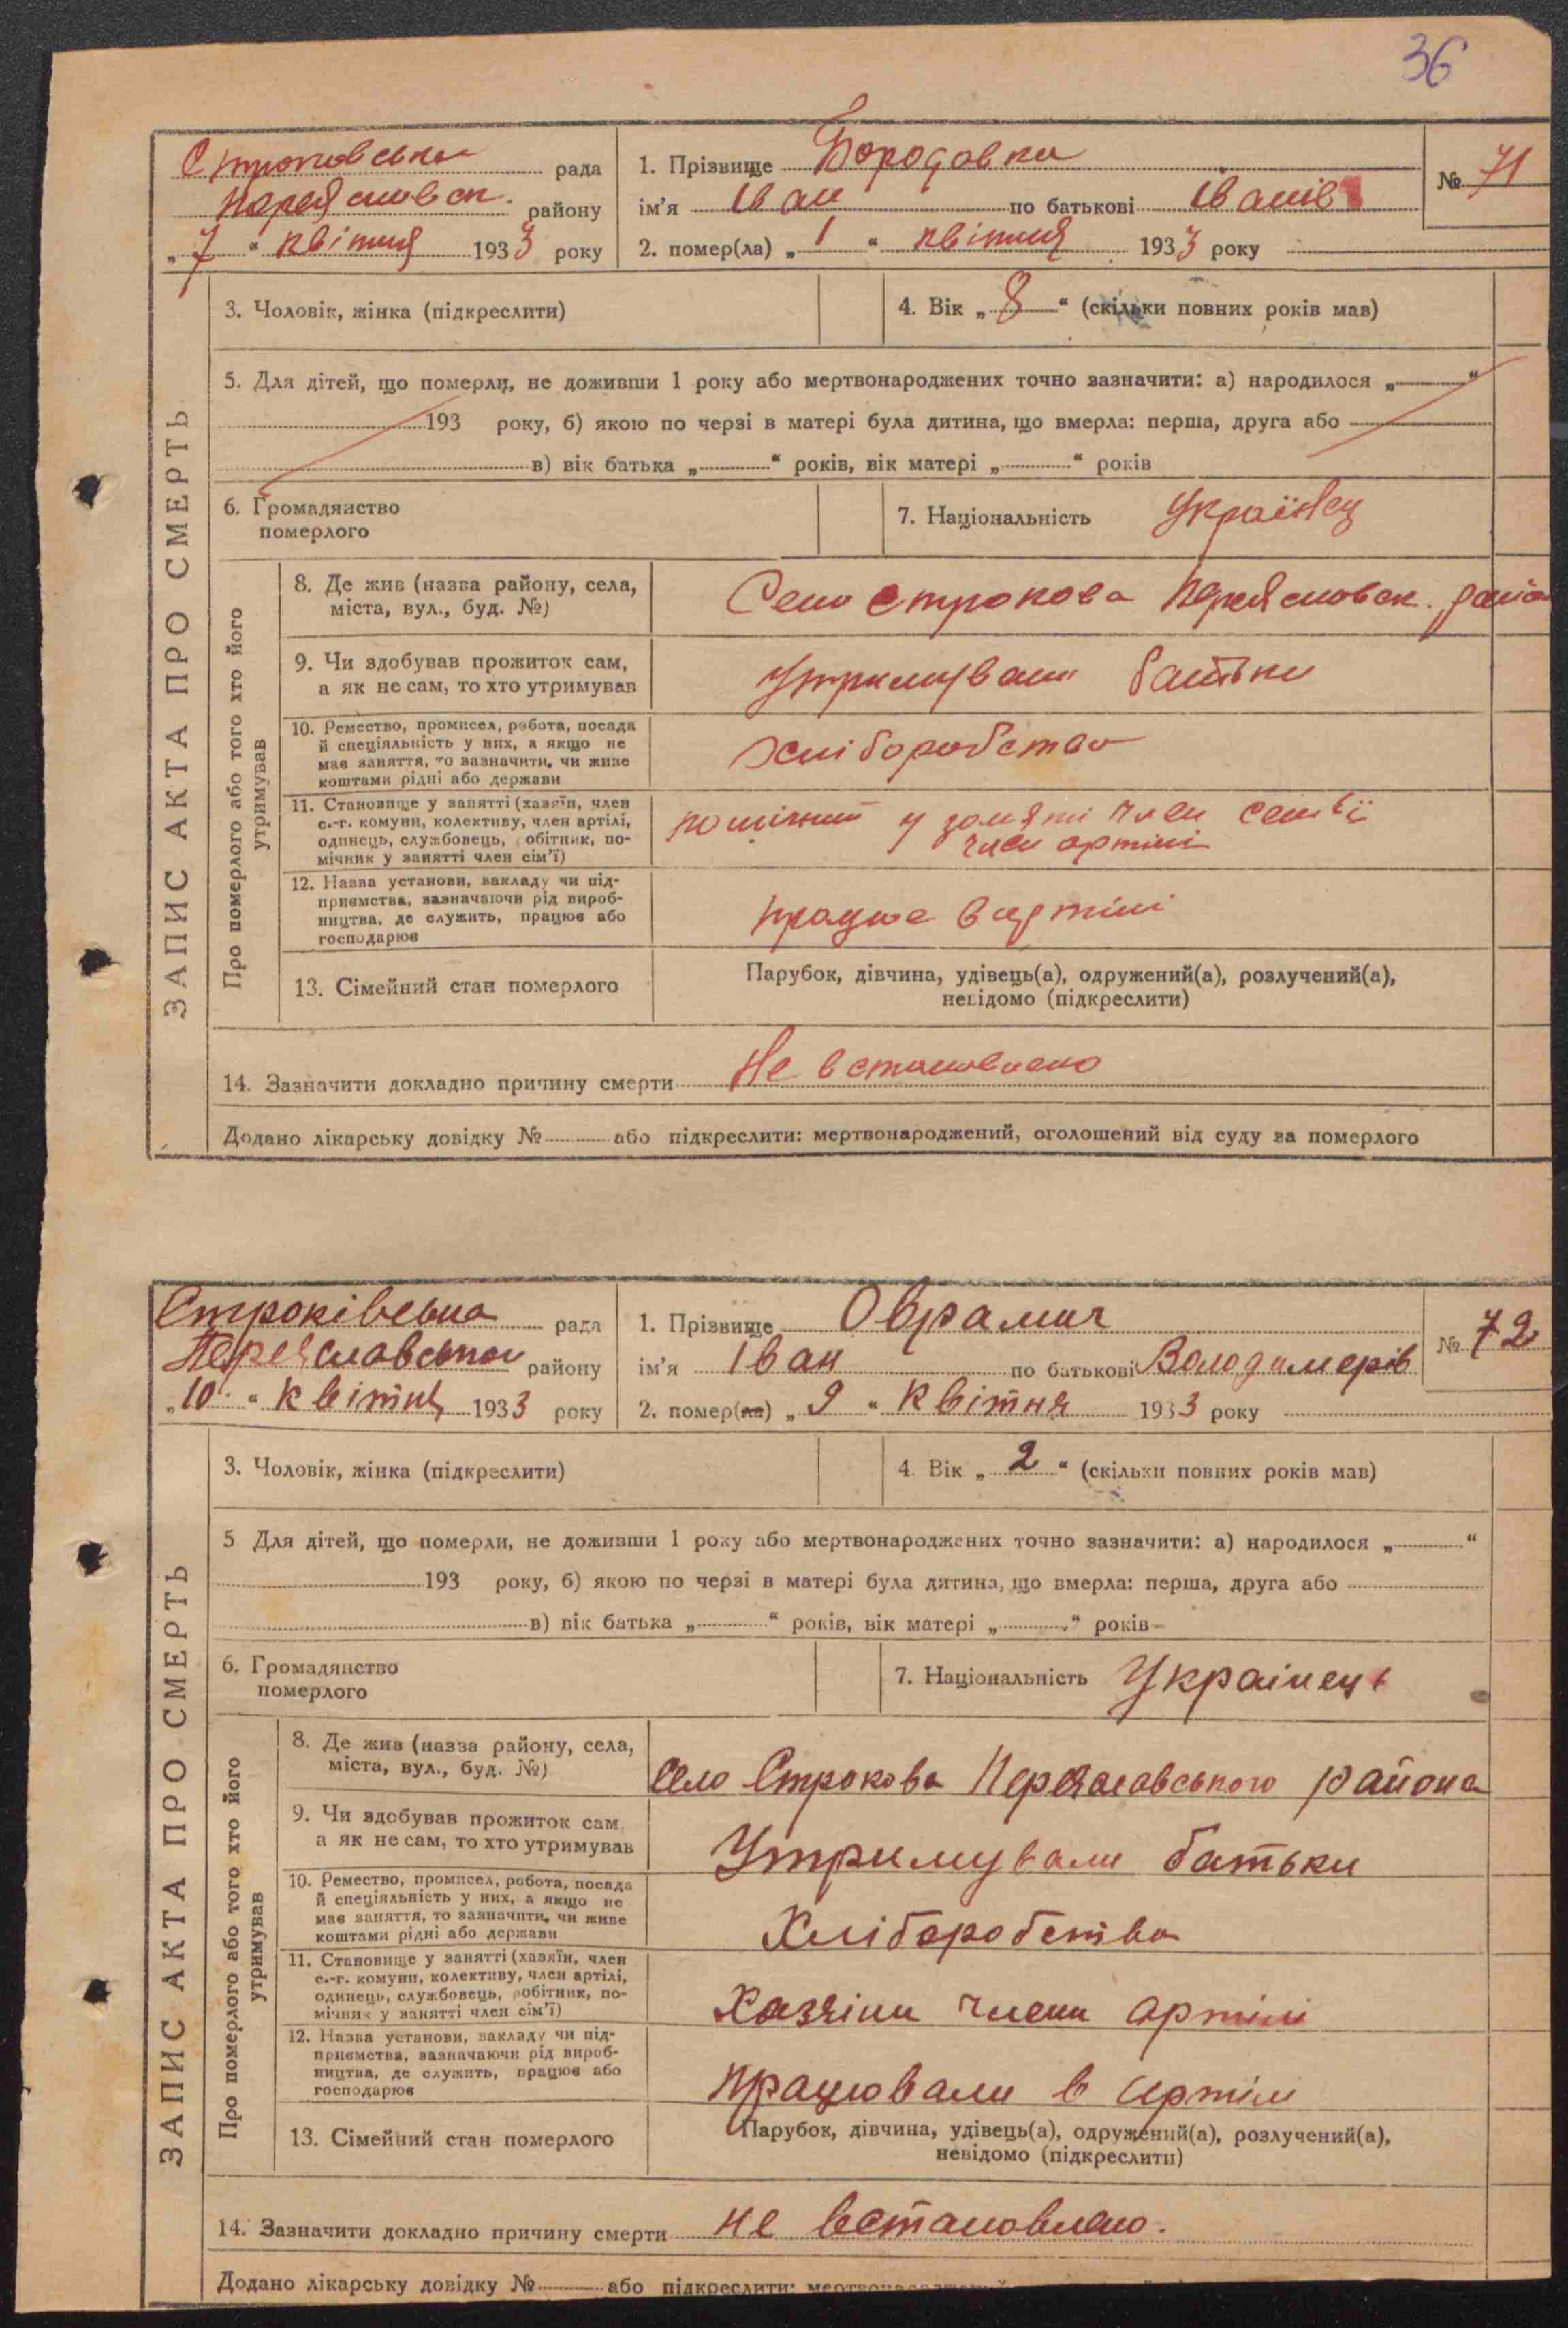 36
Строковська рада
Переяславськ. району
„7“ квітня 1933 року
1. Прізвище Бородавка
ім'я Іван по батькові Іванів
2. помер(ла) „1“ квітня 1933 року
№ 71
ЗАПИС АКТА ПРО СМЕРТЬ
3. Чоловік, жінка (підкреслити)
4. Вік „8“ (скільки повних років мав)
5. Для дітей, що померли, не доживши 1 року або мертвонароджених точно зазначити: а) народилося „ “
193 року, б) якою по черзі в матері була дитина, що вмерла: перша, друга або
в) вік батька „ “ років, вік матері „ “ років
6. Громадянство
померлого
7. Національність Українец
Про померлого або того хто його
утримував
8. Де жив (назва району, села,
міста, вул., буд. №)
Село Строкова Переяславськ. райо
9. Чи здобував прожиток сам,
а як не сам, то хто утримував
Утримували батьки
10. Ремество, промисел, робота, посада
й спеціяльність у них, а якщо не
має заняття, то зазначити, чи живе
коштами рідні або держави
Хліборобство
11. Становище у занятті (хазяїн, член
с.-г. комуни, колективу, член артілі,
одинець, службовець, робітник, по-
мічник у занятті член сім'ї)
помічник у занятті член семьї
член артілі
12. Назва установи, закладу чи під-
приємства, зазначаючи рід вироб-
ництва, де служить, працює або
господарює
працює в артілі
13. Сімейний стан померлого
Парубок, дівчина, удівець(а), одружений(а), розлучений(а),
невідомо (підкреслити)
14. Зазначити докладно причину смерти Не встановлено
Додано лікарську довідку № або підкреслити: мертвонароджений, оголошений від суду за померлого
Строківська рада
Переяславська району
„10“ квітня 1933 року
1. Прізвище Оврамич
ім'я Іван по батькові Володимерів
2. помер(ла) „9“ Квітня 1933 року
№ 72
ЗАПИС АКТА ПРО СМЕРТЬ
3. Чоловік, жінка (підкреслити)
4. Вік „2“ (скільки повних років мав)
5 Для дітей, що померли, не доживши 1 року або мертвонароджених точно зазначити: а) народилося „ “
193 року, б) якою по черзі в матері була дитина, що вмерла: перша, друга або
в) вік батька „ “ років, вік матері „ “ років
6. Громадянство
померлого
7. Національність Українець
Про померлого або того хто його
утримував
8. Де жив (назва району, села,
міста, вул., буд. №)
село Строкова Переяславського района
9. Чи здобував прожиток сам,
а як не сам, то хто утримував
Утримували батьки
10. Ремество, промисел, робота, посада
й спеціяльність у них, а якщо не
має заняття, то зазначити, чи живе
коштами рідні або держави
Хліборобства
11. Становище у занятті (хазяїн, член
с.-г. комуни, колективу, член артілі,
одинець, службовець, робітник, по-
мічник у занятті член сім'ї)
Хазяїни члени артілі
12. Назва установи, закладу чи під-
приємства, зазначаючи рід вироб-
ництва, де служить, працює або
господарює
Працювали в артілі
13. Сімейний стан померлого
Парубок, дівчина, удівець(а), одружений(а), розлучений(а),
невідомо (підкреслити)
14. Зазначити докладно причину смерти не встановлено.
Додано лікарську довідку № або підкреслити: